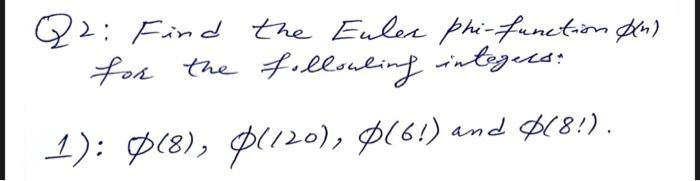 Q2: Find the Euler phi-function ϕ(n)
for the following integers:
1): ϕ(8), ϕ(120), ϕ(6!) and ϕ(8!).